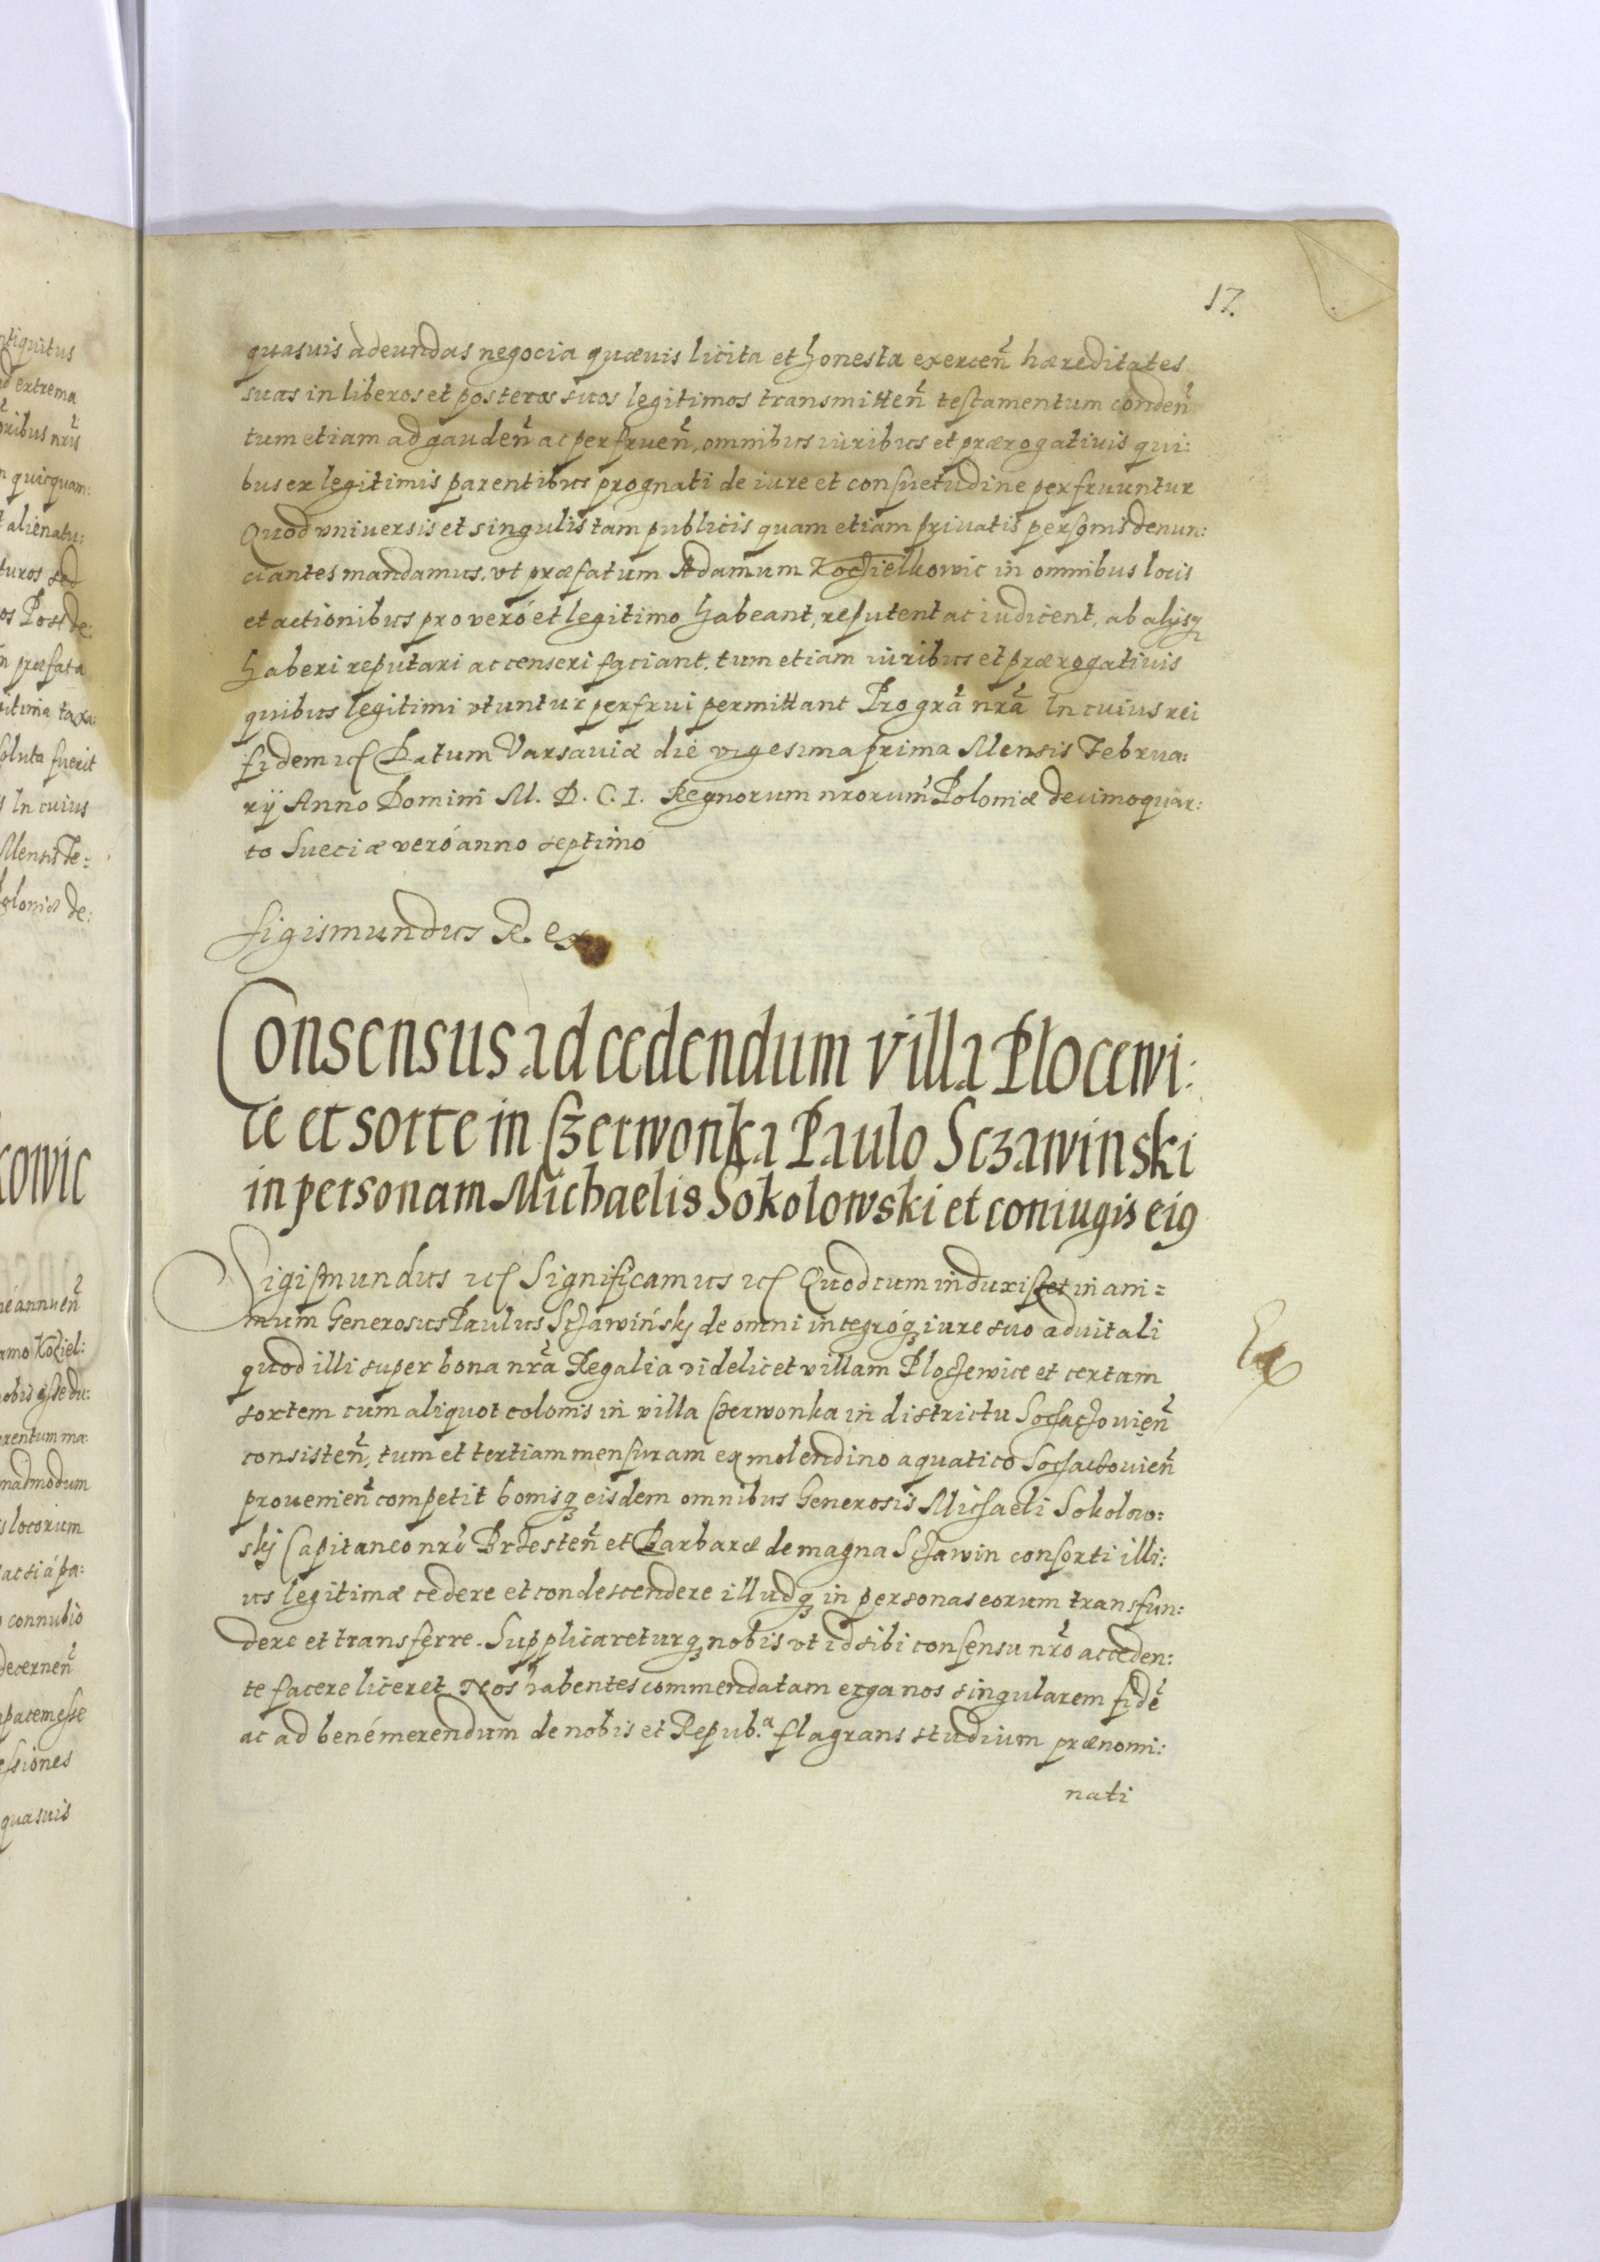 17.
quasuis adeundas negocia quæuis licita et honesta exercen̄ hæreditates
suas in liberos et posteros suos legitimos transmitten̄ testamentum conden̄
tum etiam ad gauden̄ ac perfruen̄, omnibus iuribus et prærogatiuis qui:
bus ex legitimis parentibus prognati de iure et consuetudine perfruuntur
Quod vniuersis et singulis tam publicis quam etiam priuatis personis denun:
ciantes mandamus. vt præfatum Adamum Kozielkowic in omnibus locis
et actionibus pro veró et legitimo habeant, reputent ac iudicent, ab alijsq̨
haberi reputari ac censeri faciant. tum etiam iuribus et prærogatiuis
quibus legitimi vtuntur perfrui permittant Pro grā nr̄a In cuius rei
fidem etc Datum Varsauiæ die vigesima prima Mensis Februa:
rij Anno Domini M. D. C. I. Regnorum nrorum Poloniæ decimoquar:
to Sueciæ veró anno septimo
Sigismundus Rex
Consensus ad cedendum villa Plocewi:
ce et sorte in Czerwonka Paulo Sczawinski
in personam Michaelis Sokolowski et coniugis eiꝰ
Sigismundus etc Significamus etc Quod cum induxisset in ani=
mum Generosus Paulus Sczawińskj de omni integróq̨ iure suo aduitali
quod illi super bona nr̄a Regalia videlicet villam Ploczewice et certam
sortem cum aliquot colonis in villa Czerwonka in districtu Sochaczouien̄
consisten̄, tum et tertiam mensuram ex molendino aquatico Sochaczouien̄
prouenien̄ competit bonisq̨ eisdem omnibus Generosis Michaeli Sokolow:
skj Capitaneo nr̄o Brzesten̄ et Barbaræ de magna Sczawin consorti illi:
us legitimæ cedere et condescendere illudq̨ in personas eorum transfun:
dere et transferre. Supplicareturq̨ nobis vt id sibi consensu nr̄o acceden:
te facere liceret Nos habentes commendatam erga nos singularem fidē
ac ad bené merendum de nobis et Repub.ᵃ flagrans studium prænomi:
nati